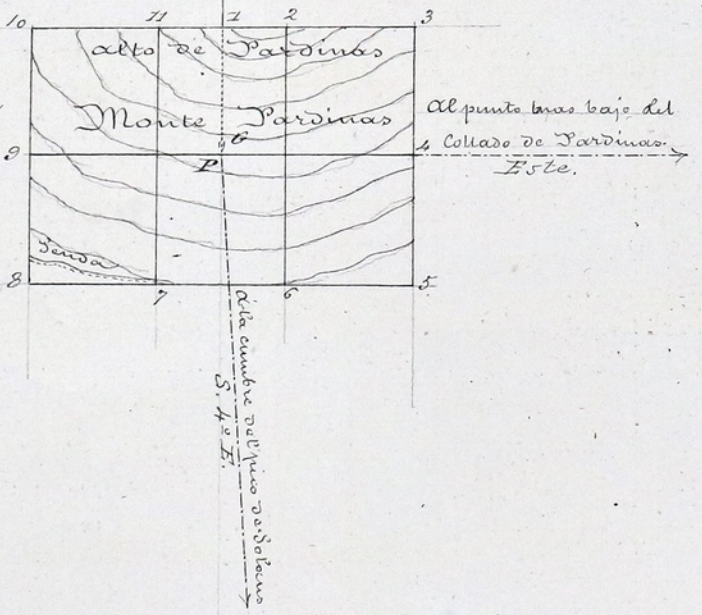 10 11 1 2 3
Alto de Pardinas
Monte Pardinas
Al punto mas bajo del
Collado de Pardinas.
Este.
9 P G 4
Senda
8 7 6 5
Á la cumbre del pico de Solano
S. 4º E.